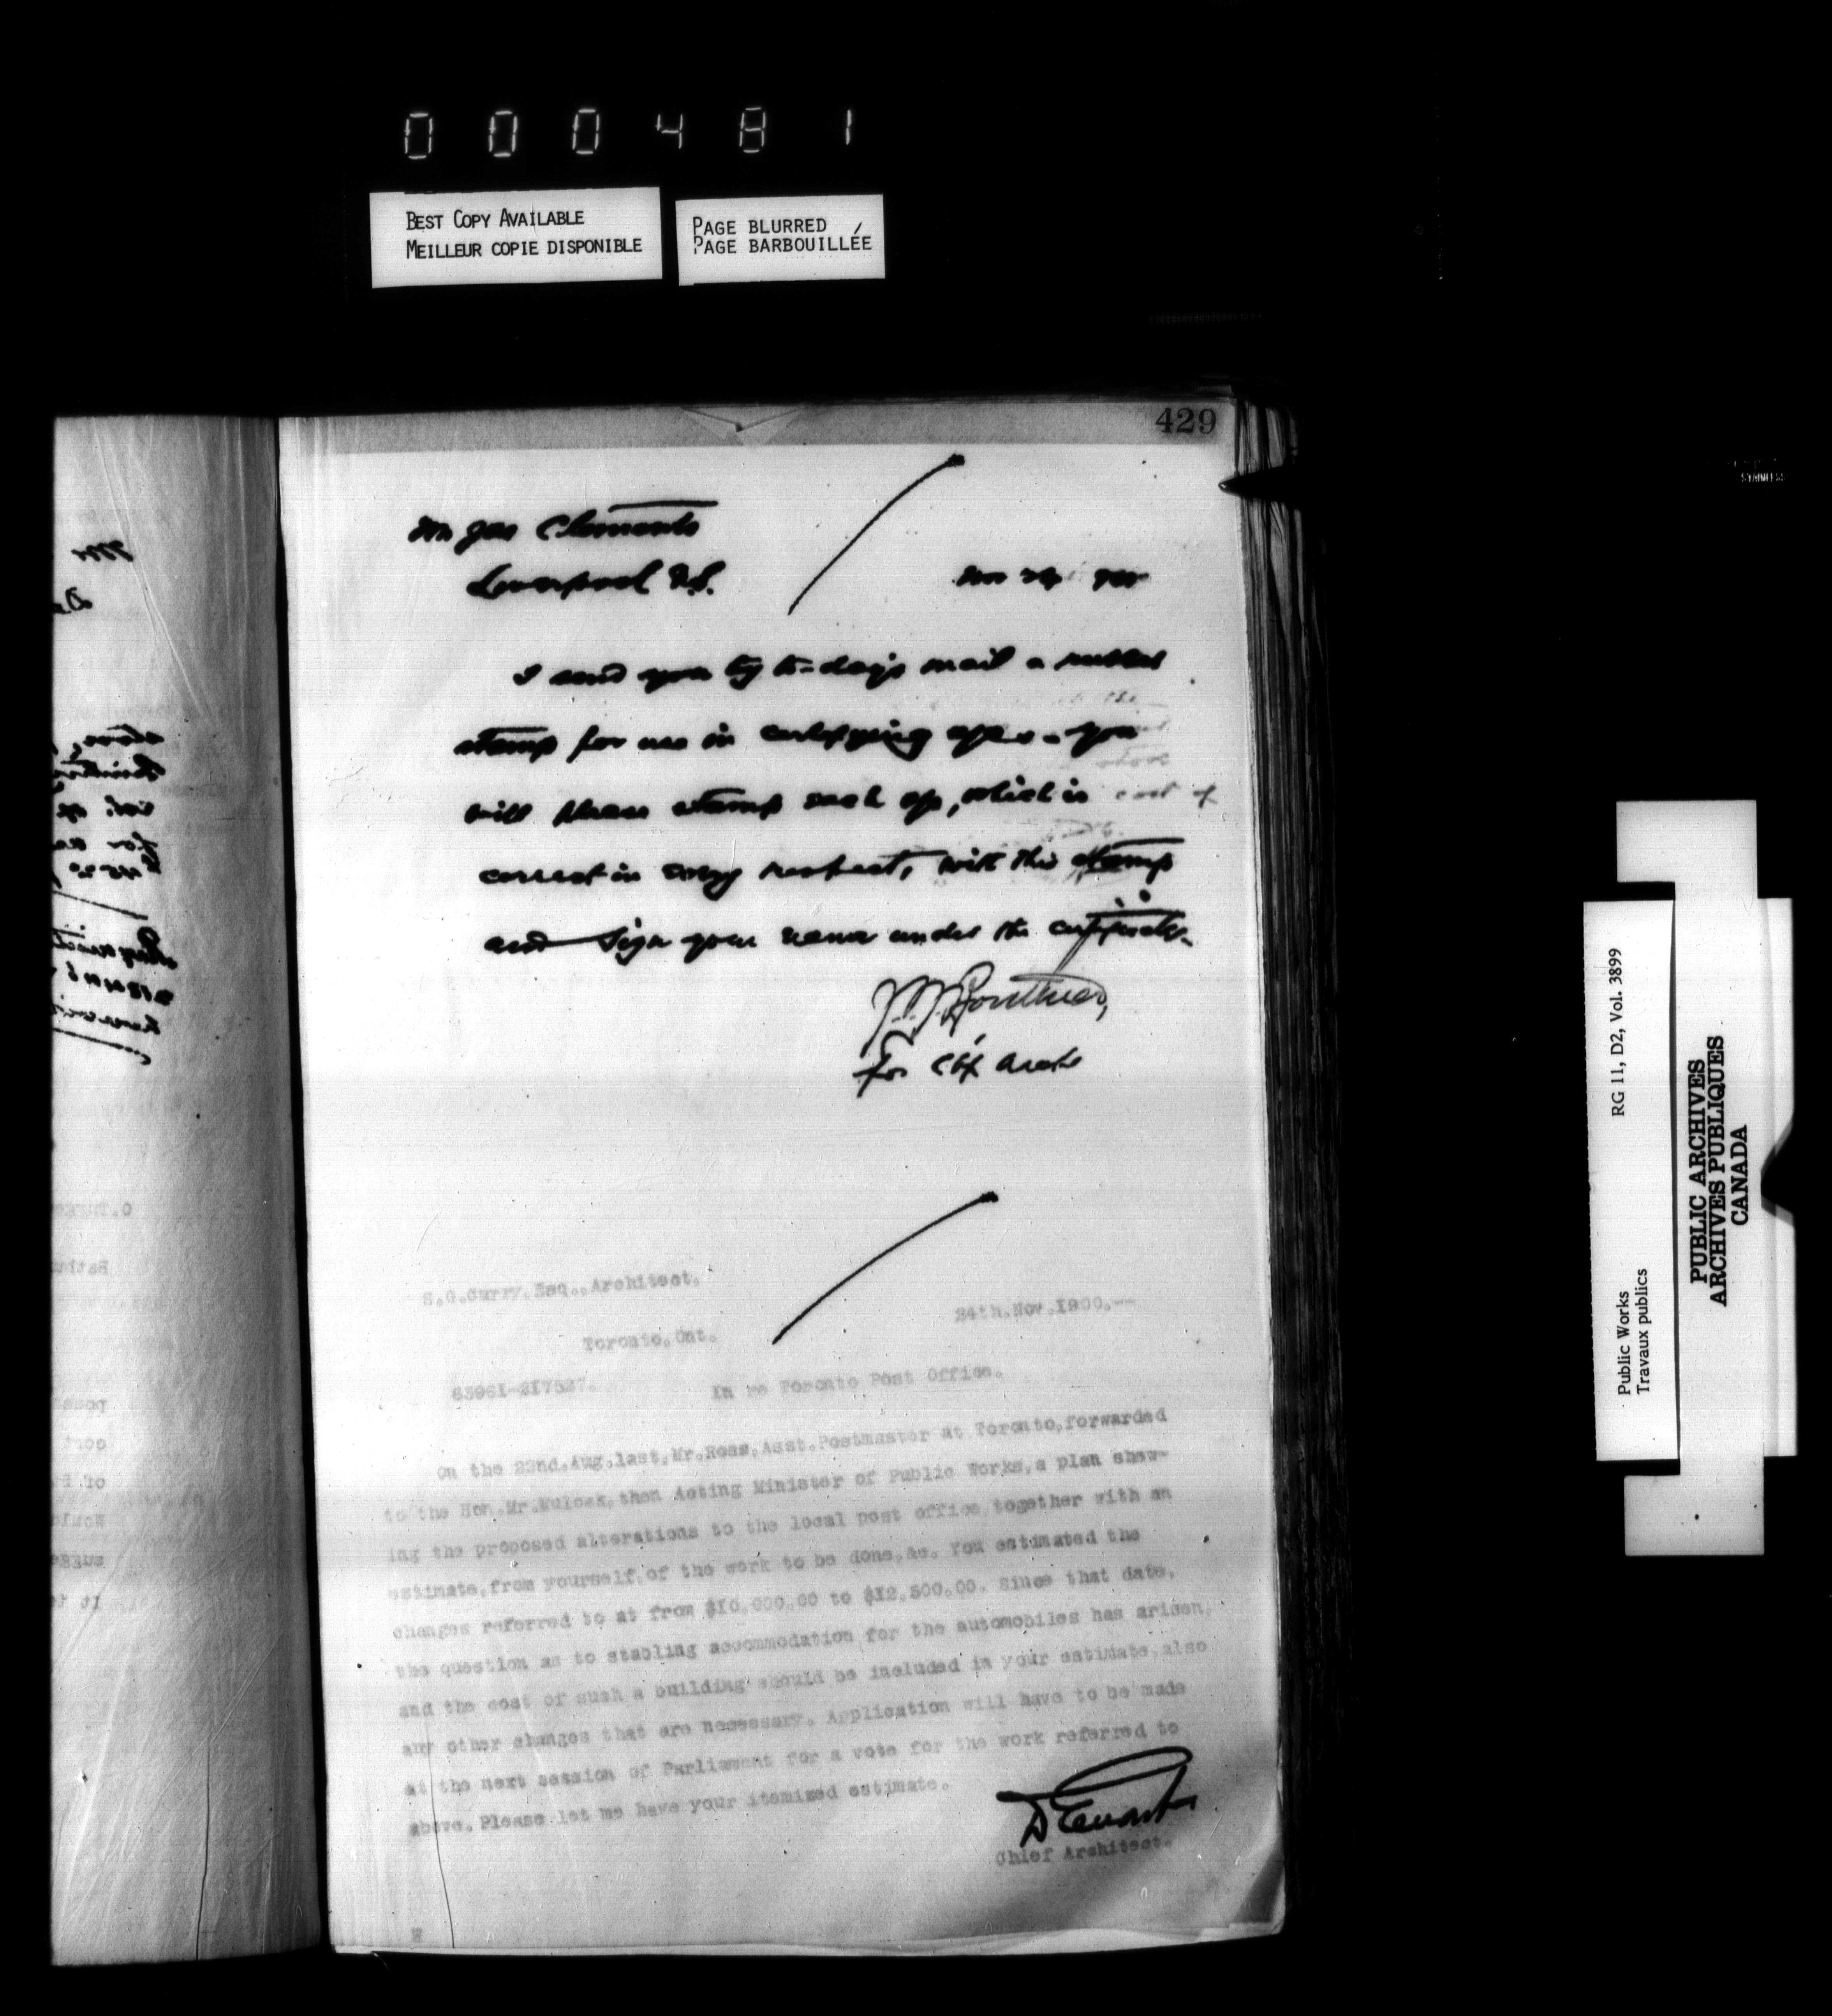 000481
BEST COPY AVAILABLE
MEILLEUR COPIE DISPONIBLE
PAGE BLURRED
PAGE BARBOUILLÉE
429
Mr Jas Clements
Liverpool N.S.
Nov 24
I send you by to-day's mail a rubber
stamp for use in certifying - you
will please stamp each which is
correct in every respect, with this stamp
and sign your name under the certificate.
for Chf Archt
S.G.Curry,Esq.,Architect,
Toronto,Ont.
24th.Nov.1900.--
6396I-2I7527.
In re Toronto Post Office.
On the 22nd.Aug.last,Mr.Ross,Asst.Postmaster at Toronto,forwarded
to the Hon.Mr.Mulock,then Acting Minister of Public Works,a plan show-
ing the proposed alterations to the local post office,together with an
estimate,from yourself,of the work to be done,&c. You estimated the
changes referred to at from $I0,000.00 to $I2,500.00. Since that date,
the question as to stabling accommodation for the automobiles has arisen,
and the cost of such a building should be included in your estimate,also
any other changes that are necessary. Application will have to be made
at the next session of Parliament for a vote for the work referred to
above. Please let me have your itemized estimate.
D Ewart
Chief Architect.
Public Works
Travaux publics
RG 11, D2, Vol. 3899
PUBLIC ARCHIVES
ARCHIVES PUBLIQUES
CANADA